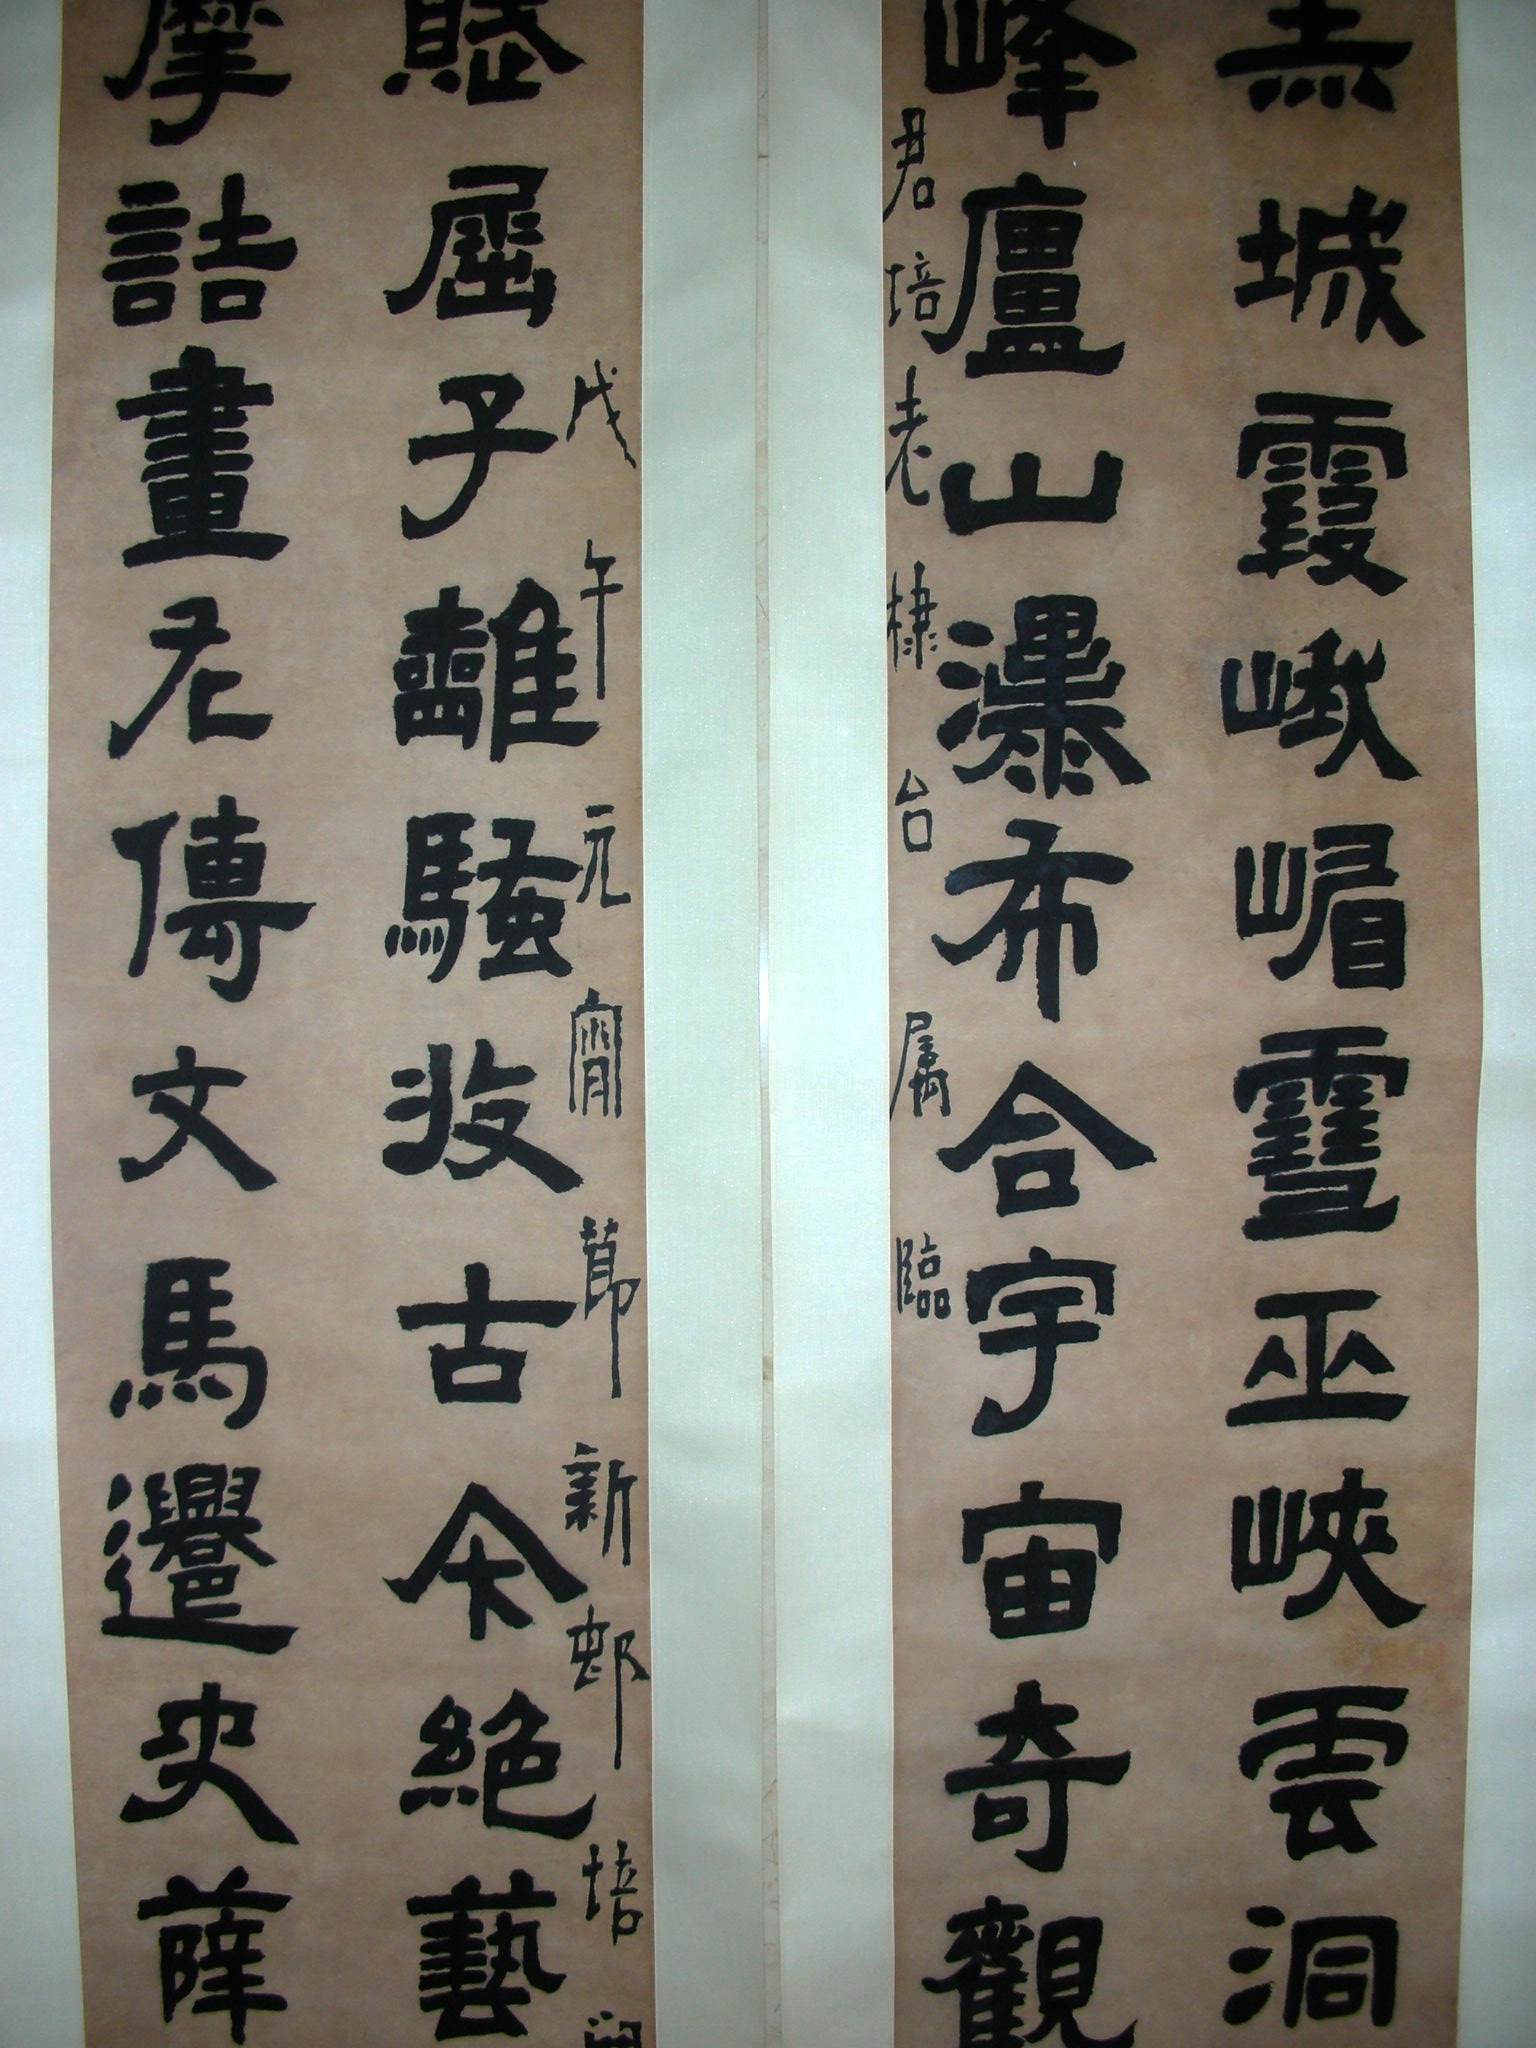 赤城霞峨嵋雪巫峽雲洞
峰廬山瀑布合宇宙奇觀
君培老棣台屬臨
摩詰畫左傳文馬遷史薛
賦屈子離騷收古今絕藝
戊午元宵節新邨培